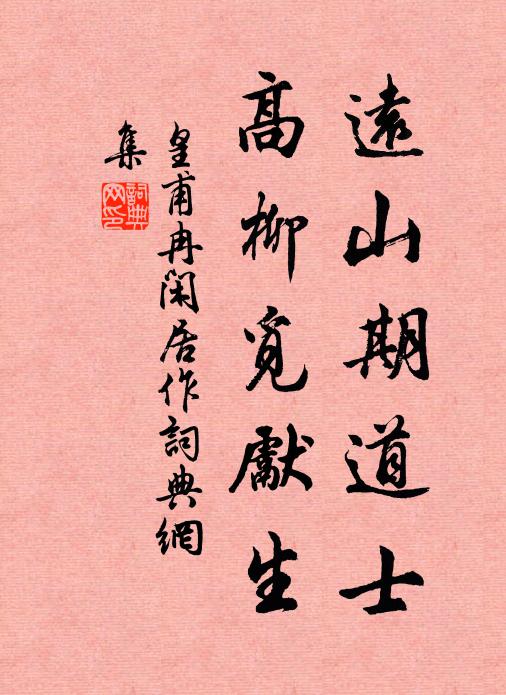 遠山期道士
高柳覓獻生
皇甫冉閑居作詞典網
集
詞典
网印